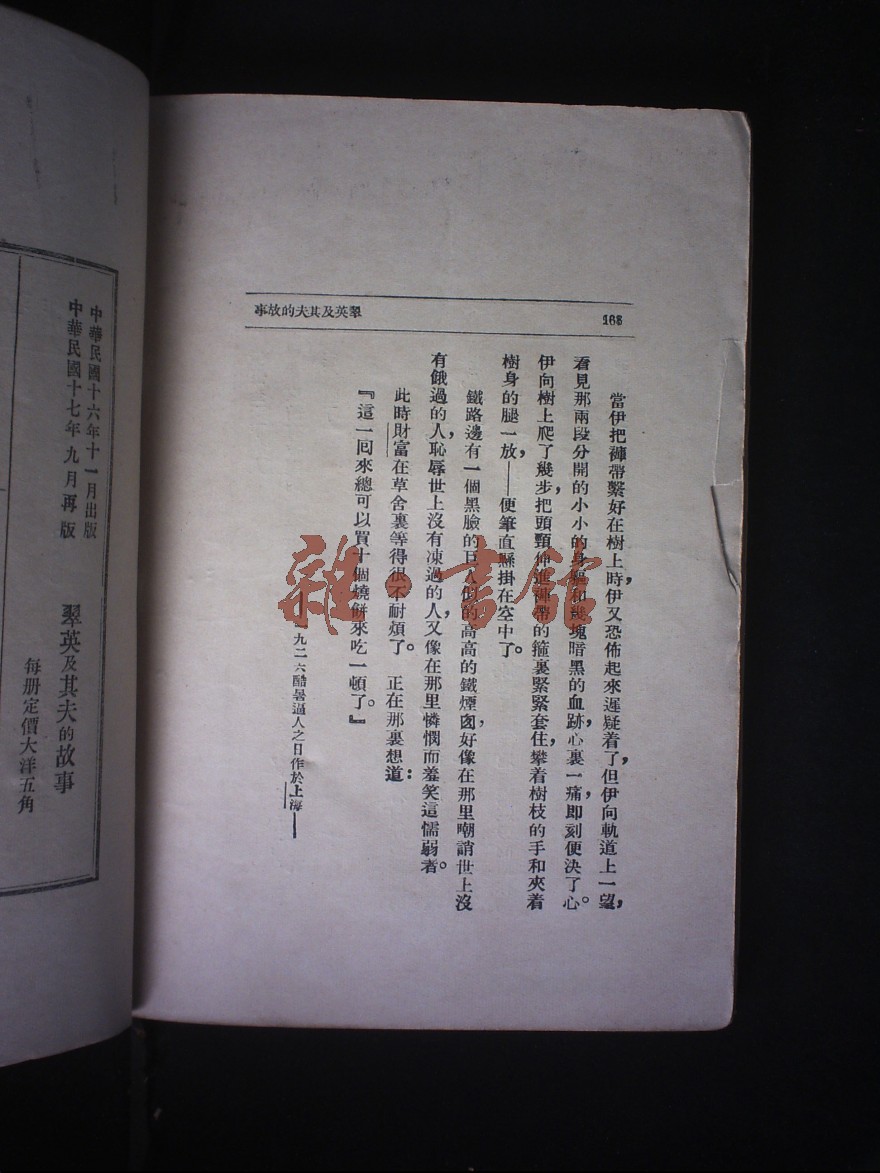 168
翠英及其夫的故事
當伊把褲帶繫好在樹上時，伊又恐佈起來遲疑着了，但伊向軌道上一望，
看見那兩段分開的小小的身軀和幾塊暗黑的血跡，心裏一痛，即刻便決了心。
伊向樹上爬了幾步，把頭頸伸進褲帶的箍裏緊緊套住，攀着樹枝的手和夾着
樹身的腿一放，——便筆直懸掛在空中了。
鐵路邊有一個黑臉的巨人似的高高的鐵煙囪，好像在那里嘲誚世上沒
有餓過的人，恥辱世上沒有凍過的人，又像在那里憐憫而羞笑這懦弱者。
此時財富在草舍裏等得很不耐煩了。正在那裏想道：
『這一囘來總可以買十個燒餅來吃一頓了。』
——一九二六酷暑逼人之日作於上海——
中華民國十六年十一月出版
中華民國十七年九月再版
翠英及其夫的故事
每册定價大洋五角
雜·書館